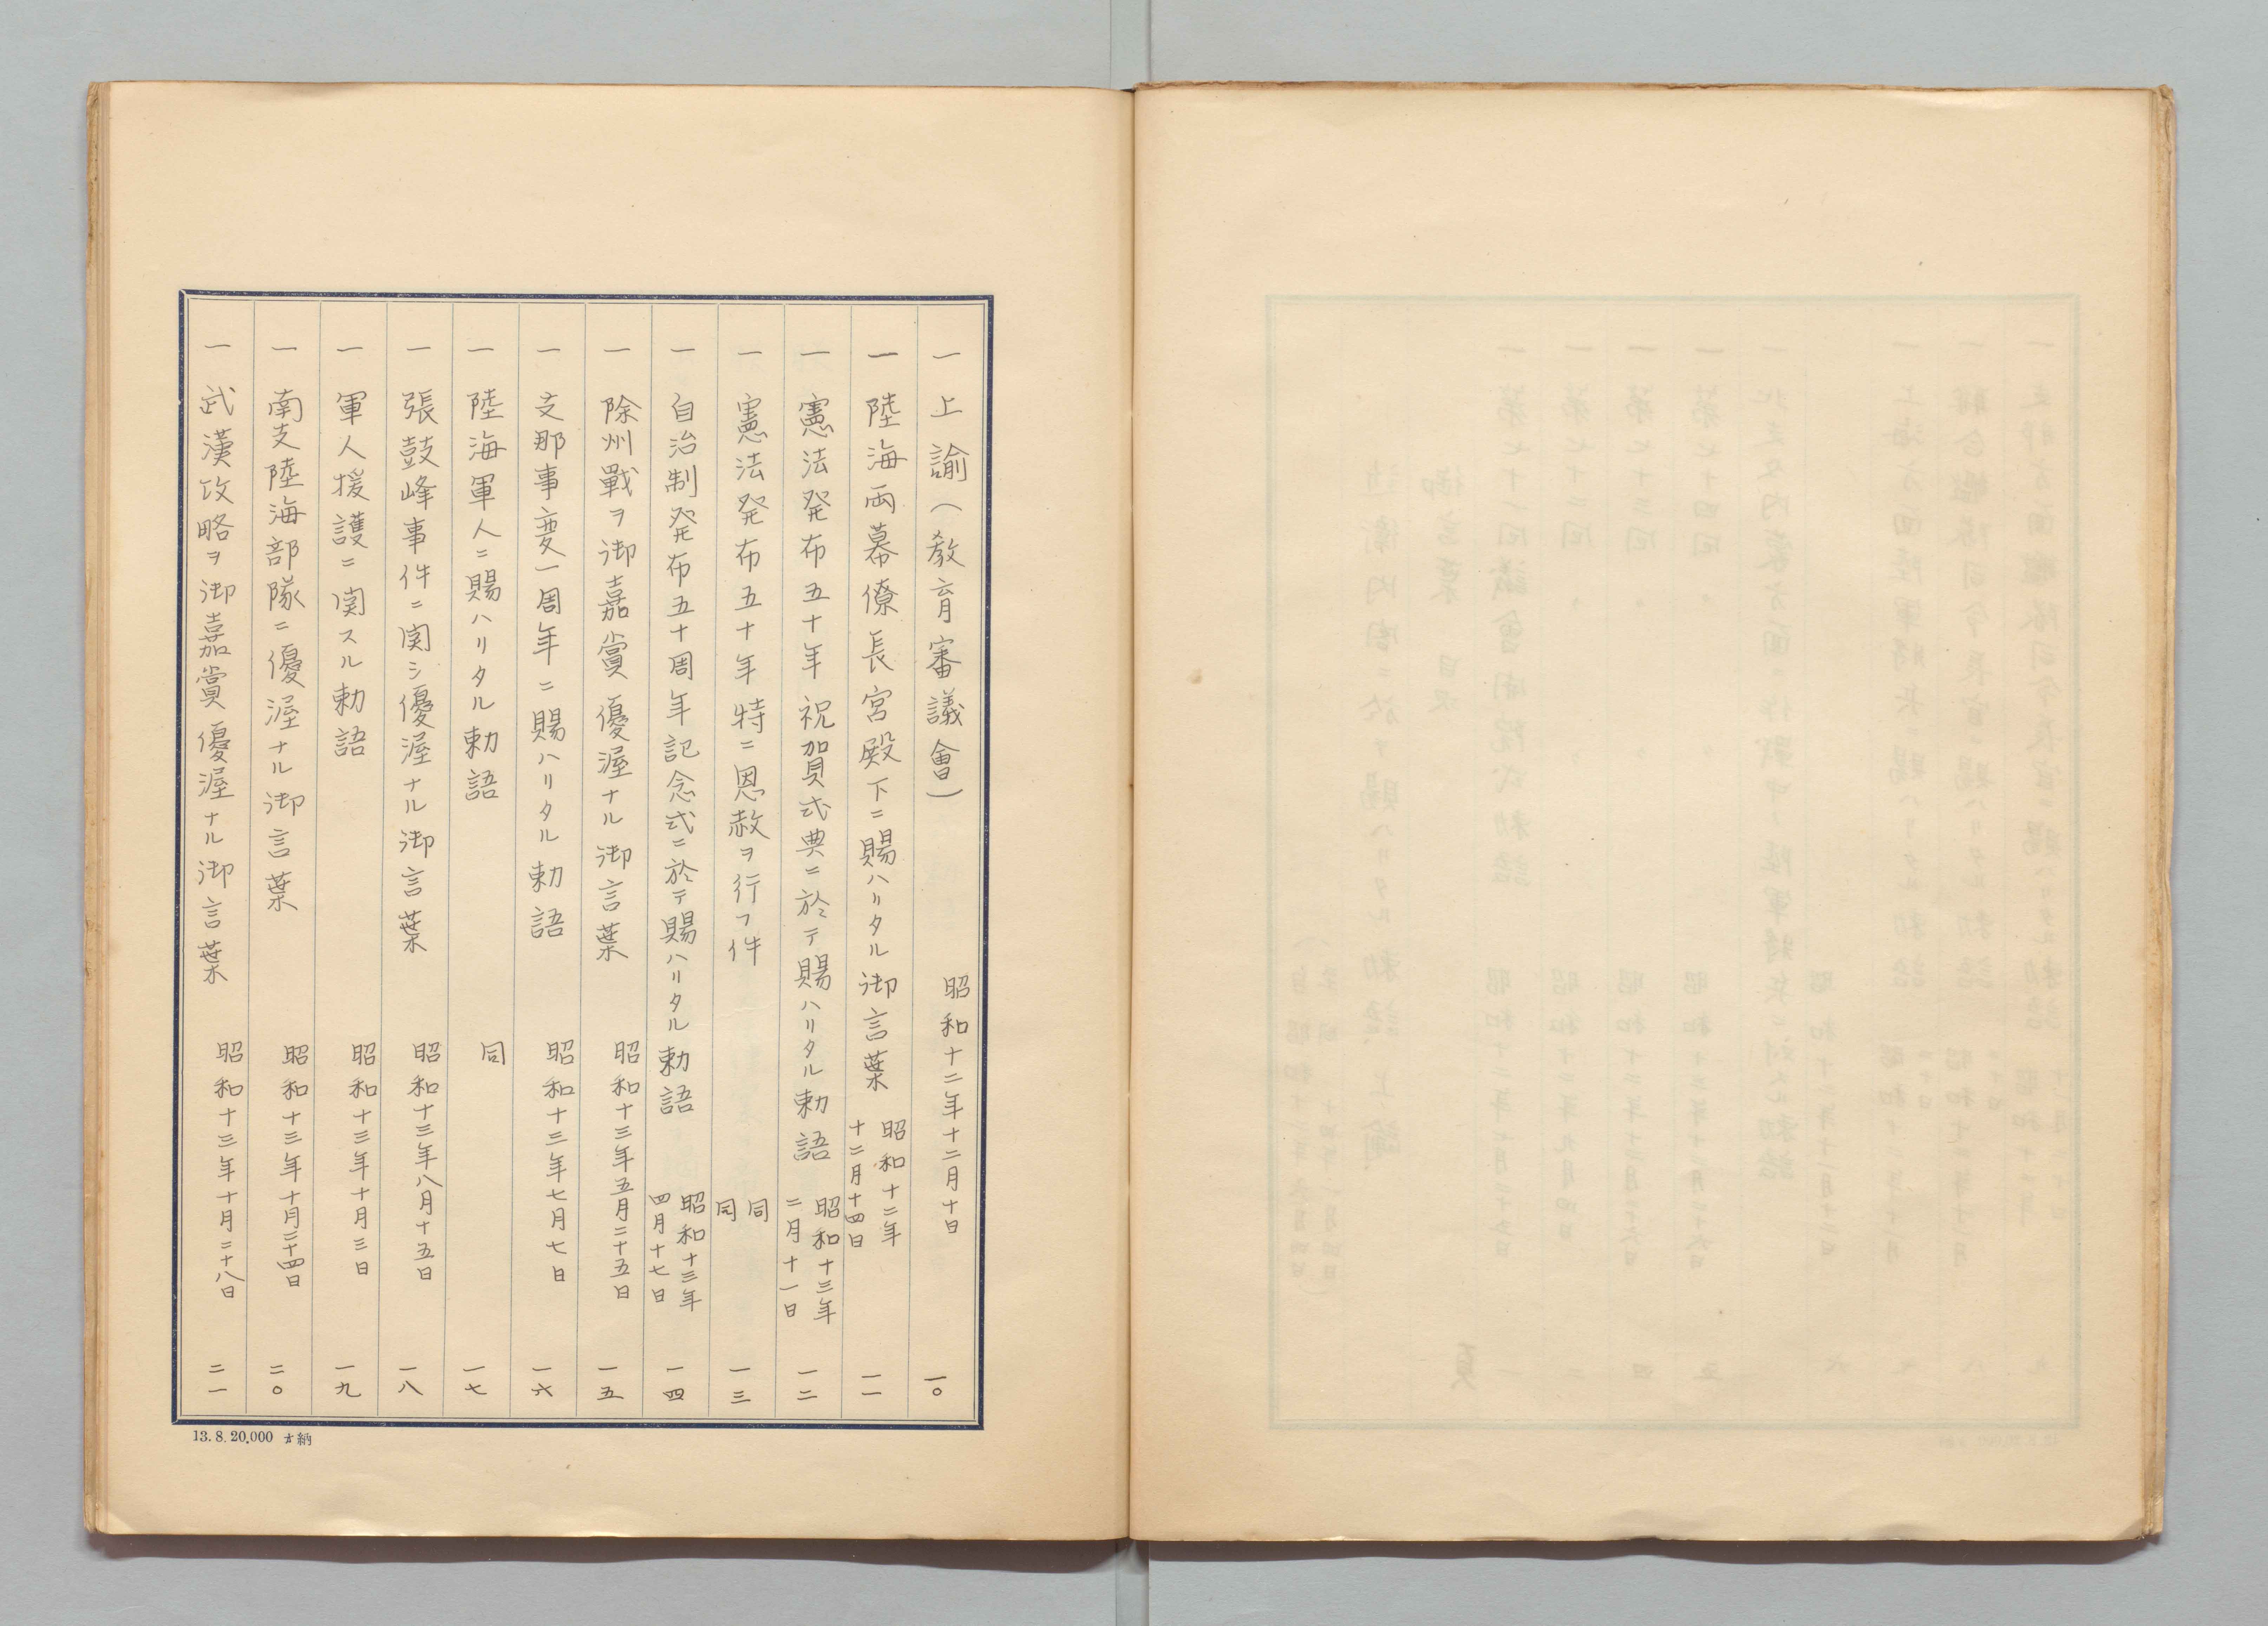 一 上諭（教育審議會） 昭和十二年十二月十日 一〇
一 陸海両幕僚長宮殿下ニ賜ハリタル御言葉 昭和十二年十二月十四日 一一
一 憲法発布五十年祝賀式典ニ於テ賜ハリタル勅語 昭和十三年二月十一日 一二
一 憲法発布五十年特ニ恩赦ヲ行フ件 同同 一三
一 自治制発布五十周年記念式ニ於テ賜ハリタル勅語 昭和十三年四月十七日 一四
一 除州戰ヲ御嘉賞優渥ナル御言葉 昭和十三年五月二十五日 一五
一 支那事変一周年ニ賜ハリタル勅語 昭和十三年七月七日 一六
一 陸海軍人ニ賜ハリタル勅語 同 一七
一 張鼓峰事件ニ関シ優渥ナル御言葉 昭和十三年八月十五日 一八
一 軍人援護ニ関スル勅語 昭和十三年十月三日 一九
一 南支陸海部隊ニ優渥ナル御言葉 昭和十三年十月二十四日 二〇
一 武漢攻略ヲ御嘉賞優渥ナル御言葉 昭和十三年十月二十八日 二一
13.8.20,000 納